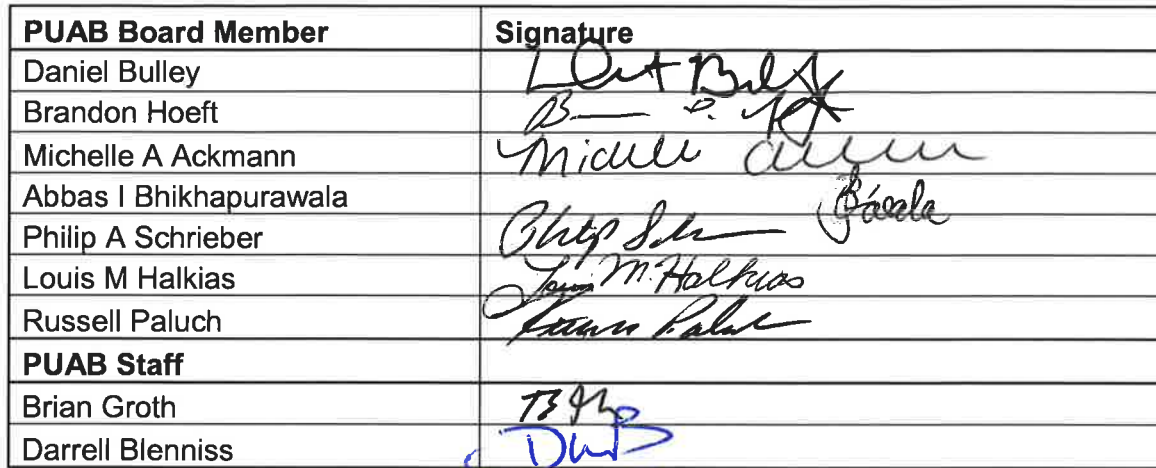 PUAB Board Member Signature
Daniel Bulley
Brandon Hoeft
Michelle A Ackmann Michelle
Abbas I Bhikhapurawala
Philip A Schrieber Philip
Louis M Halkias Louis M. Halkias
Russell Paluch
PUAB Staff
Brian Groth
Darrell Blenniss